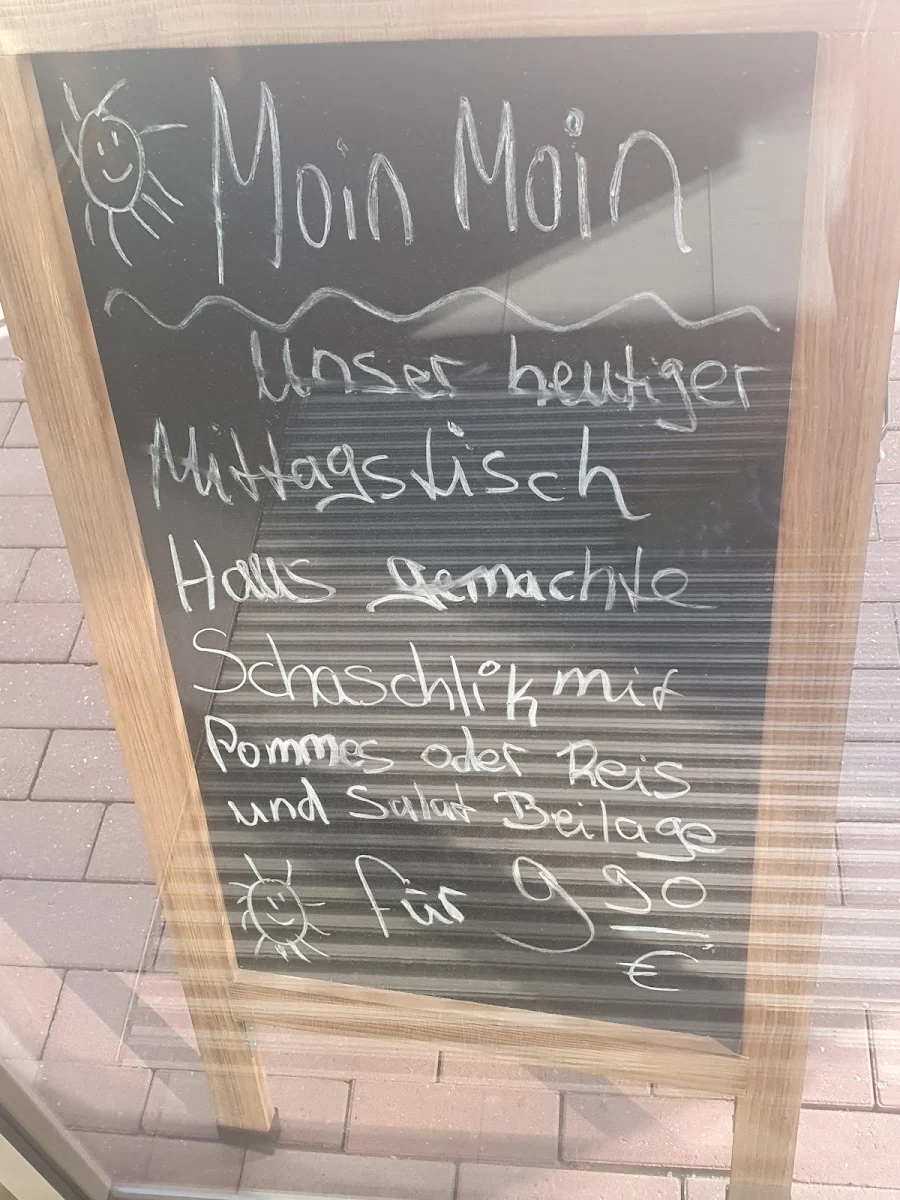 Moin Moin
Unser heutiger
Mittagstisch
Haus gemachte
Schaschlik mit
Pommes oder Reis
und Salat Beilage
für 9 90
€